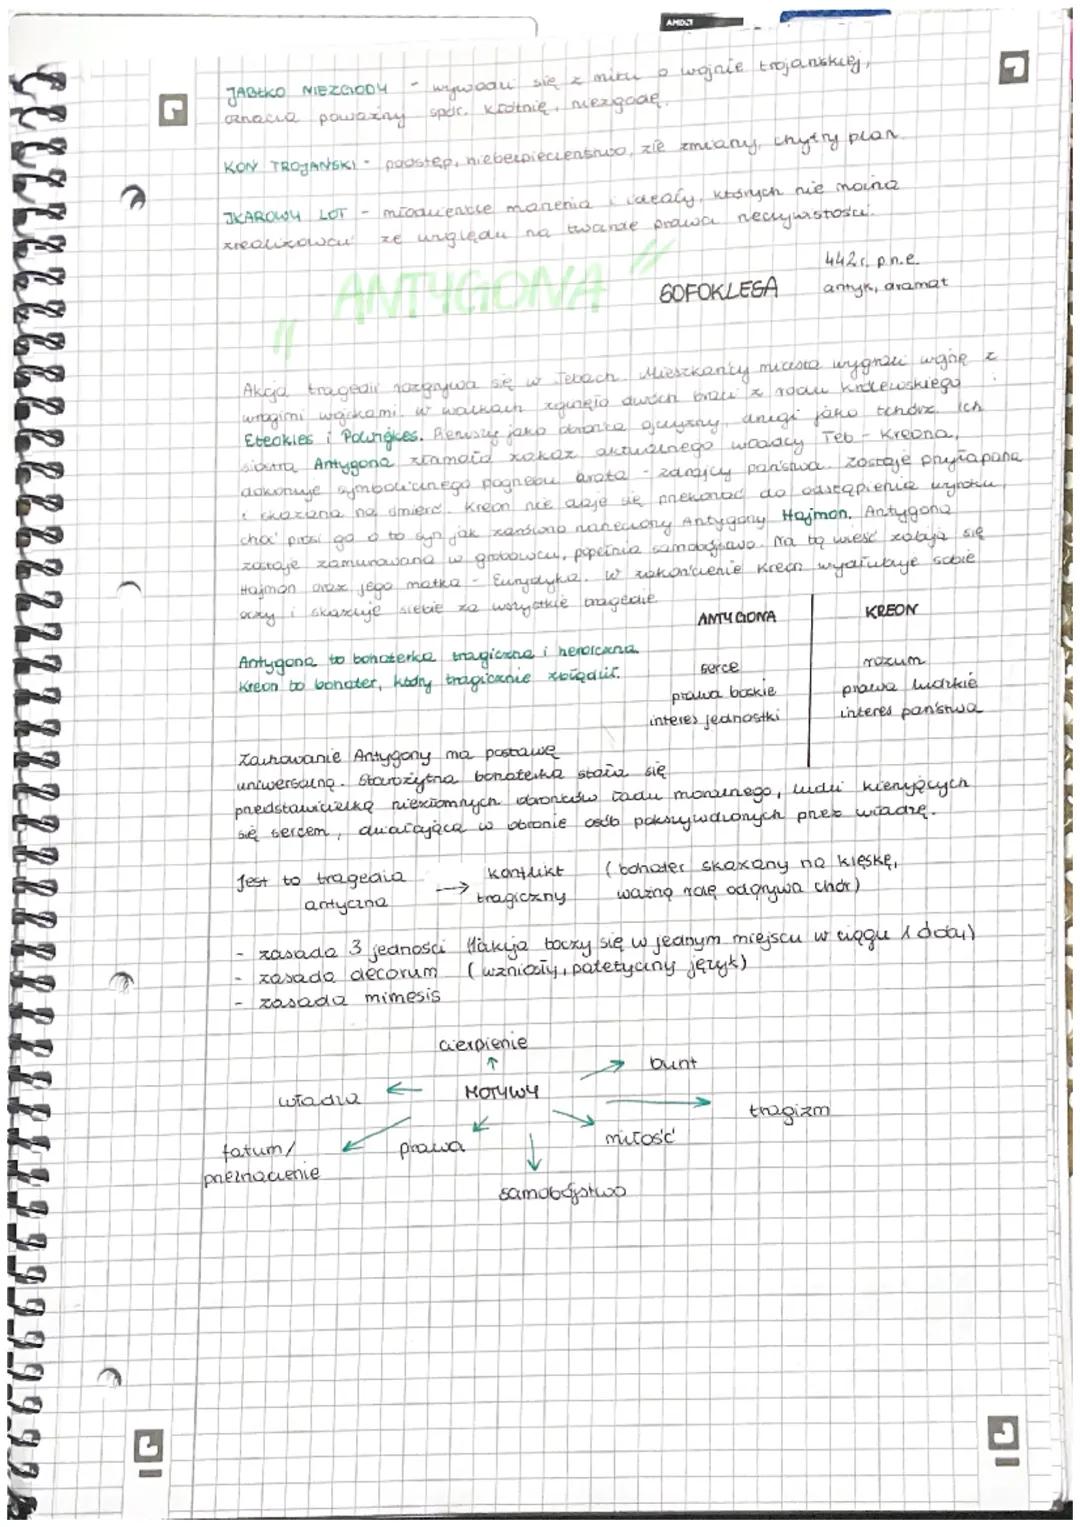 JABŁKO NIEZGODY - wywodzi się z mitu o wojnie trojańskiej,
oznacza poważny spór, kłótnię, niezgodę.
KOŃ TROJAŃSKI - podstęp, niebezpieczeństwo, złe zmiany, chytry plan.
IKAROWY LOT - młodzieńcze marzenia i ideały, których nie można
zrealizować ze względu na twarde prawa rzeczywistości.
"ANTYGONA" SOFOKLESA
442 r. p.n.e.
antyk, dramat
Akcja tragedii rozgrywa się w Tebach. Mieszkańcy miasta wygrali wojnę z
wrogimi wojskami. W walkach zginęło dwóch braci z rodu królewskiego :
Eteokles i Polinejkes. Pierwszy jako obrońca ojczyzny, drugi jako tchórz. Ich
siostra Antygona złamała zakaz aktualnego władcy Teb - Kreona,
dokonuje symbolicznego pogrzebu brata - zdrajcy państwa. Zostaje przyłapana
i skazana na śmierć. Kreon nie daje się przekonać do odstąpienia wyroku,
choć prosi go o to syn jak zarówno narzeczony Antygony Hajmon. Antygona
zostaje zamurowana w grobowcu, popełnia samobójstwo. Na tą wieść zabija się
Hajmon oraz jego matka - Eurydyka. W zakończenie Kreon wydłubuje sobie
oczy i skazuje siebie za wszystkie tragedie.
Antygona to bohaterka tragiczna i heroiczna.
Kreon to bohater, który tragicznie zbłądził.
ANTYGONA KREON
serce rozum
prawa boskie prawa ludzkie
interes jednostki interes państwa
Zachowanie Antygony ma postawę
uniwersalną. Starożytna bohaterka stała się
przedstawicielką niezłomnych obrońców ładu moralnego, ludzi kierujących
się sercem, działająca w obronie osób pokrzywdzonych przez władzę.
Jest to tragedia antyczna → konflikt tragiczny (bohater skazany na klęskę,
ważną rolę odgrywa chór)
- zasada 3 jedności (akcja toczy się w jednym miejscu w ciągu 1 doby)
- zasada decorum (wzniosły, patetyczny język)
- zasada mimesis
cierpienie
bunt
władza
MOTYWY
tragizm
fatum/
przeznaczenie
prawa
miłość
samobójstwo